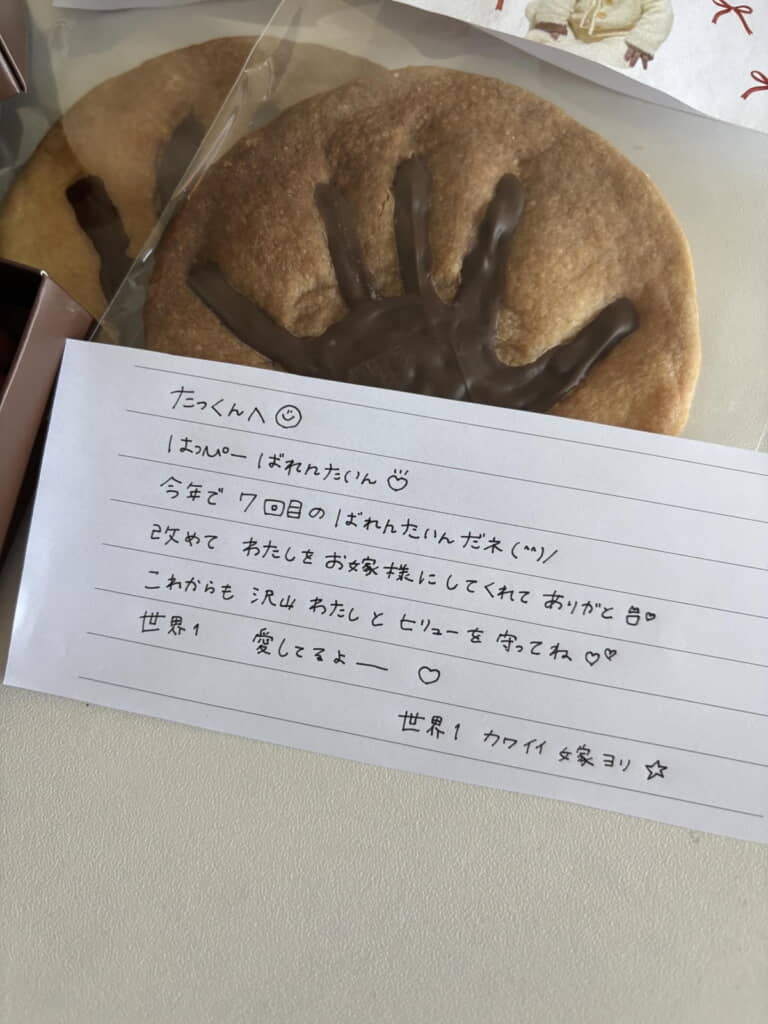 たっくんへ
はっぴー ばれんたいん
今年で 7回目の ばれんたいんだネ(^^)/
改めて わたしをお嫁様にしてくれて ありがと
これからも 沢山 わたしと ヒリューを 守ってね ♡♡
世界1 愛してるよー ♡
世界1 カワイイ 嫁ヨリ ☆